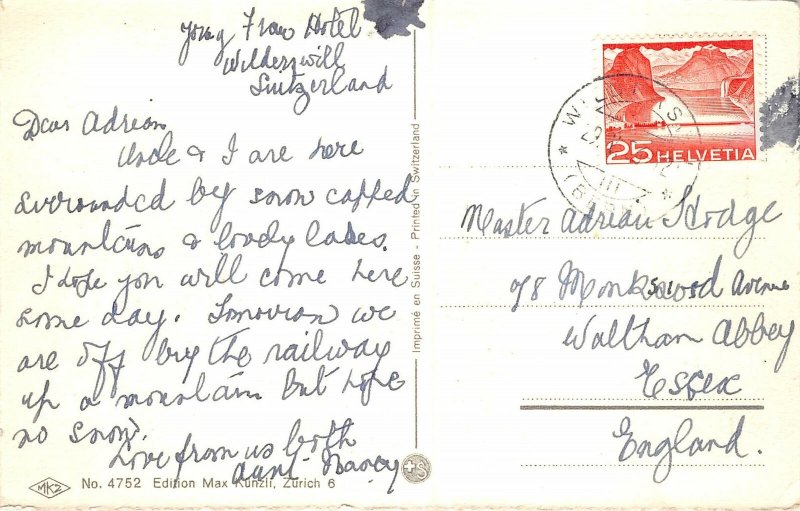 Jong Frau Hotel
Wilderswill
Switzerland
Dear Adrian
Uncle & I are here
surrounded by snow capped
mountains & lovely lakes.
I hope you will come here
some day. Tomorrow we
are off by the railway
up a mountain but hope
no snow.
Love from us both
Aunt Nancy
MKZ
No. 4752 Edition Max Künzli, Zürich 6
Imprimé en Suisse - Printed in Switzerland
+S
25 HELVETIA
Master Adrian Hodge
78 Monkswood Avenue
Waltham Abbey
Essex
England.